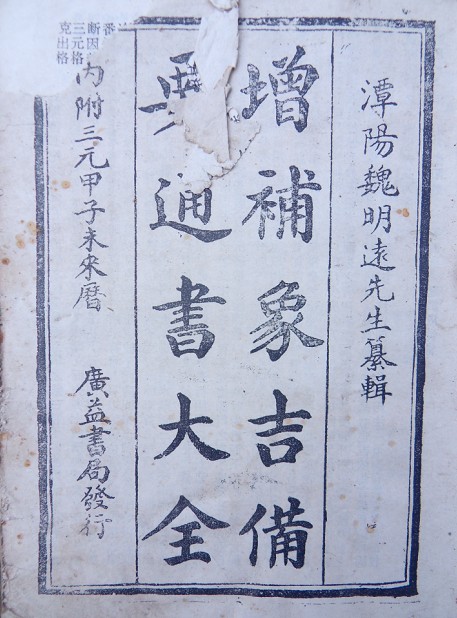 潭陽魏明遠先生纂輯
增補象吉備
要通書大全
內附三元甲子未來曆
廣益書局發行
番
断因
三元格
克出格